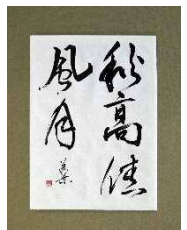 秋高佳
風月